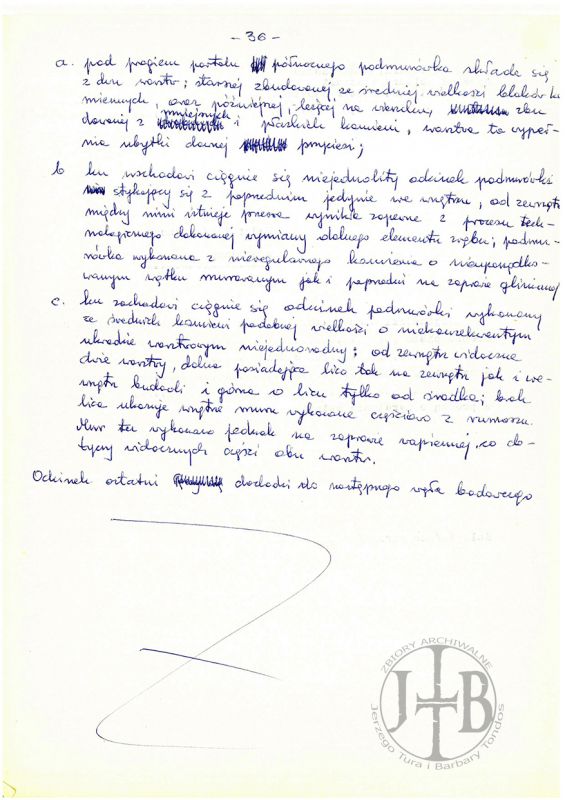 - 36 -
a. pod progiem portalu północnego podmurówka składa się
z dwu warstw; starszej zbudowanej ze średniej wielkości bloków ka
miennych, oraz późniejszej, leżącej na wierzchu, zbu
dowanej z mniejszych i płaskich kamieni, warstwa ta wypeł-
nia ubytki dawnej przyciesi;
b ku wschodowi ciągnie się niejednolity odcinek podmurówki
stykający się z poprzednim jedynie we wnętrzu, od zewnątrz
między nimi istnieje przerwa wynikła zapewne z procesu tech-
nologicznego dokonanej wymiany dolnego elementu zrębu; podmu-
rówka wykonana z nieregularnego kamienia o nieuporządko-
wanym wątku murowanym jak i poprzedni na zaprawie glinianej
c. ku zachodowi ciągnie się odcinek podmurówki wykonany
ze średnich kamieni podobnej wielkości o niekonsekwentnym
układzie warstwowym niejednorodny; od zewnątrz widoczne
dwie warstwy, dolna posiadająca lico tak na zewnątrz jak i we-
wnątrz budowli i górna o licu tylko od środka; brak
lica ukazuje wnętrze muru wykonane częściowo z rumoszu.
Mur ten wykonano jednak na zaprawie wapiennej, co do-
tyczy widocznych części obu warstw.
Odcinek ostatni dochodzi do następnego węgła budowanego
ZBIORY ARCHIWALNE
JTTB
Jerzego Tura i Barbary Tondos